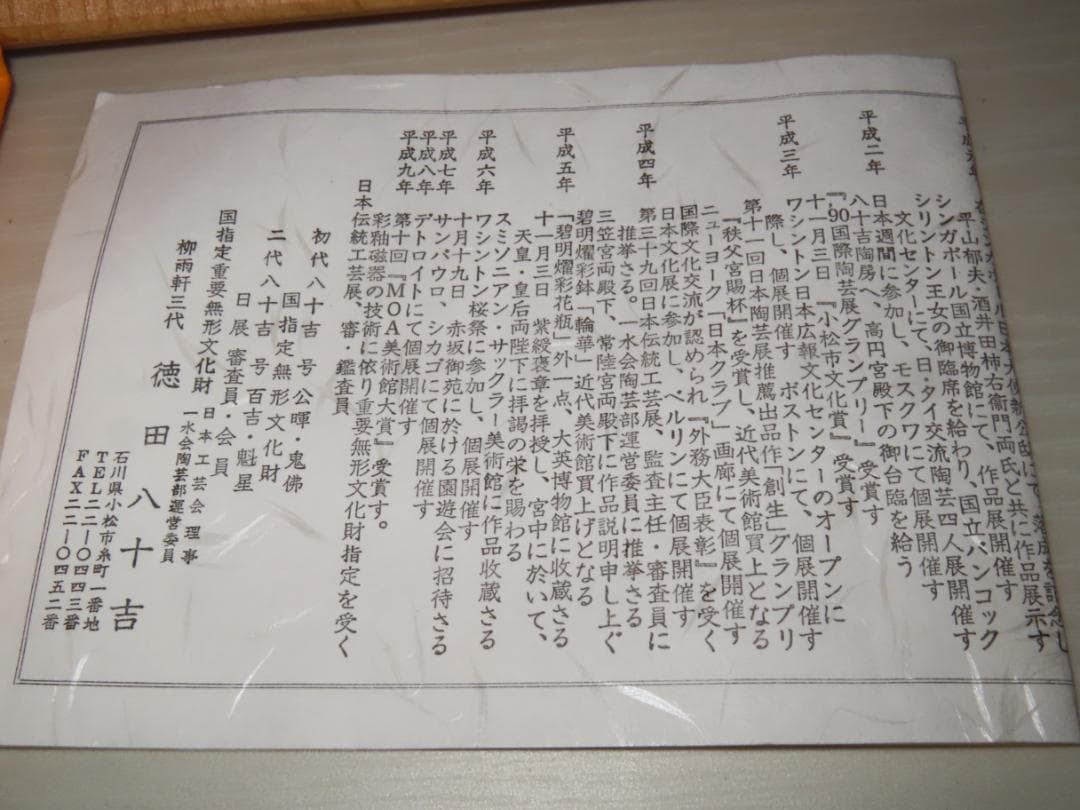 平山郁夫・酒井田柿右衛門両氏と共に作品展示す
シンガポール国立博物館にて、作品展開催す
シリントン王女の御臨席を給わり、国立バンコック
文化センターにて、日・タイ交流陶芸四人展開催す
平成二年
日本週間に参加し、モスクワにて個展開催す
八十吉陶房へ、高円宮殿下の御台臨を給う
『90国際陶芸展グランプリー』受賞す
十一月三日 『小松市文化賞』受賞す
平成三年
ワシントン日本広報文化センターのオープンに
際し、個展開催す ボストンにて、個展開催す
第十一回日本陶芸展推薦出品作「創生」グランプリ
『秩父宮賜杯』を受賞し、近代美術館買上となる
ニューヨーク「日本クラブ」画廊にて個展開催す
国際文化交流が認められ『外務大臣表彰』を受く
平成四年
日本文化展に参加し、ベルリンにて個展開催す
第三十九回日本伝統工芸展、監査主任・審査員に
推挙さる。一水会陶芸部運営委員に推挙さる
三笠宮両殿下、常陸宮両殿下に作品説明申し上ぐ
碧明燿彩鉢「輪華」近代美術館買上げとなる
平成五年
「碧明燿彩花瓶」外一点、大英博物館に収蔵さる
十一月三日 紫綬褒章を拝授し、宮中に於いて、
天皇・皇后両陛下に拝謁の栄を賜わる
スミソニアン・サックラー美術館に作品収蔵さる
平成六年
ワシントン桜祭に参加し、個展開催す
十月十九日 赤坂御苑に於ける園遊会に招待さる
平成七年
サンパウロ、シカゴにて個展開催す
平成八年
デトロイトにて個展開催す
平成九年
第十回『MOA美術館大賞』受賞す。
彩釉磁器の技術に依り重要無形文化財指定を受く
日本伝統工芸展、審・鑑査員
初代 八十吉 号 公暉・鬼佛
国指定無形文化財
二代 八十吉 号 百吉・魁星
日展 審査員・会員
国指定重要無形文化財 日本工芸会 理事
一水会陶芸部運営委員
柳雨軒三代 徳田八十吉
石川県小松市糸町一番地
TEL二二-〇四四三番
FAX二二-〇四五二番